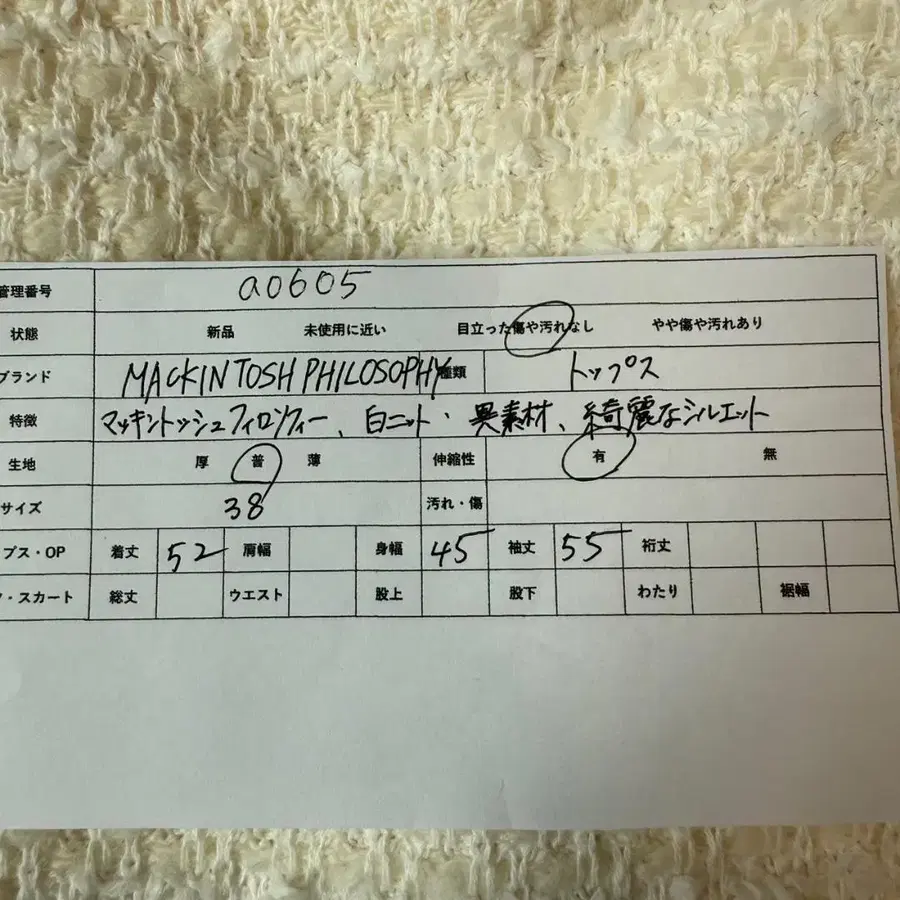 管理番号 a0605
状態 新品 未使用に近い 目立った傷や汚れなし やや傷や汚れあり
ブランド MACKINTOSH PHILOSOPHY 種類 トップス
特徴 マッキントッシュフィロソフィー、白ニット・異素材、綺麗なシルエット
生地 厚 普 薄 伸縮性 有 無
サイズ 38 汚れ・傷
プス・OP 着丈 52 肩幅 身幅 45 袖丈 55 裄丈
・スカート 総丈 ウエスト 股上 股下 わたり 裾幅